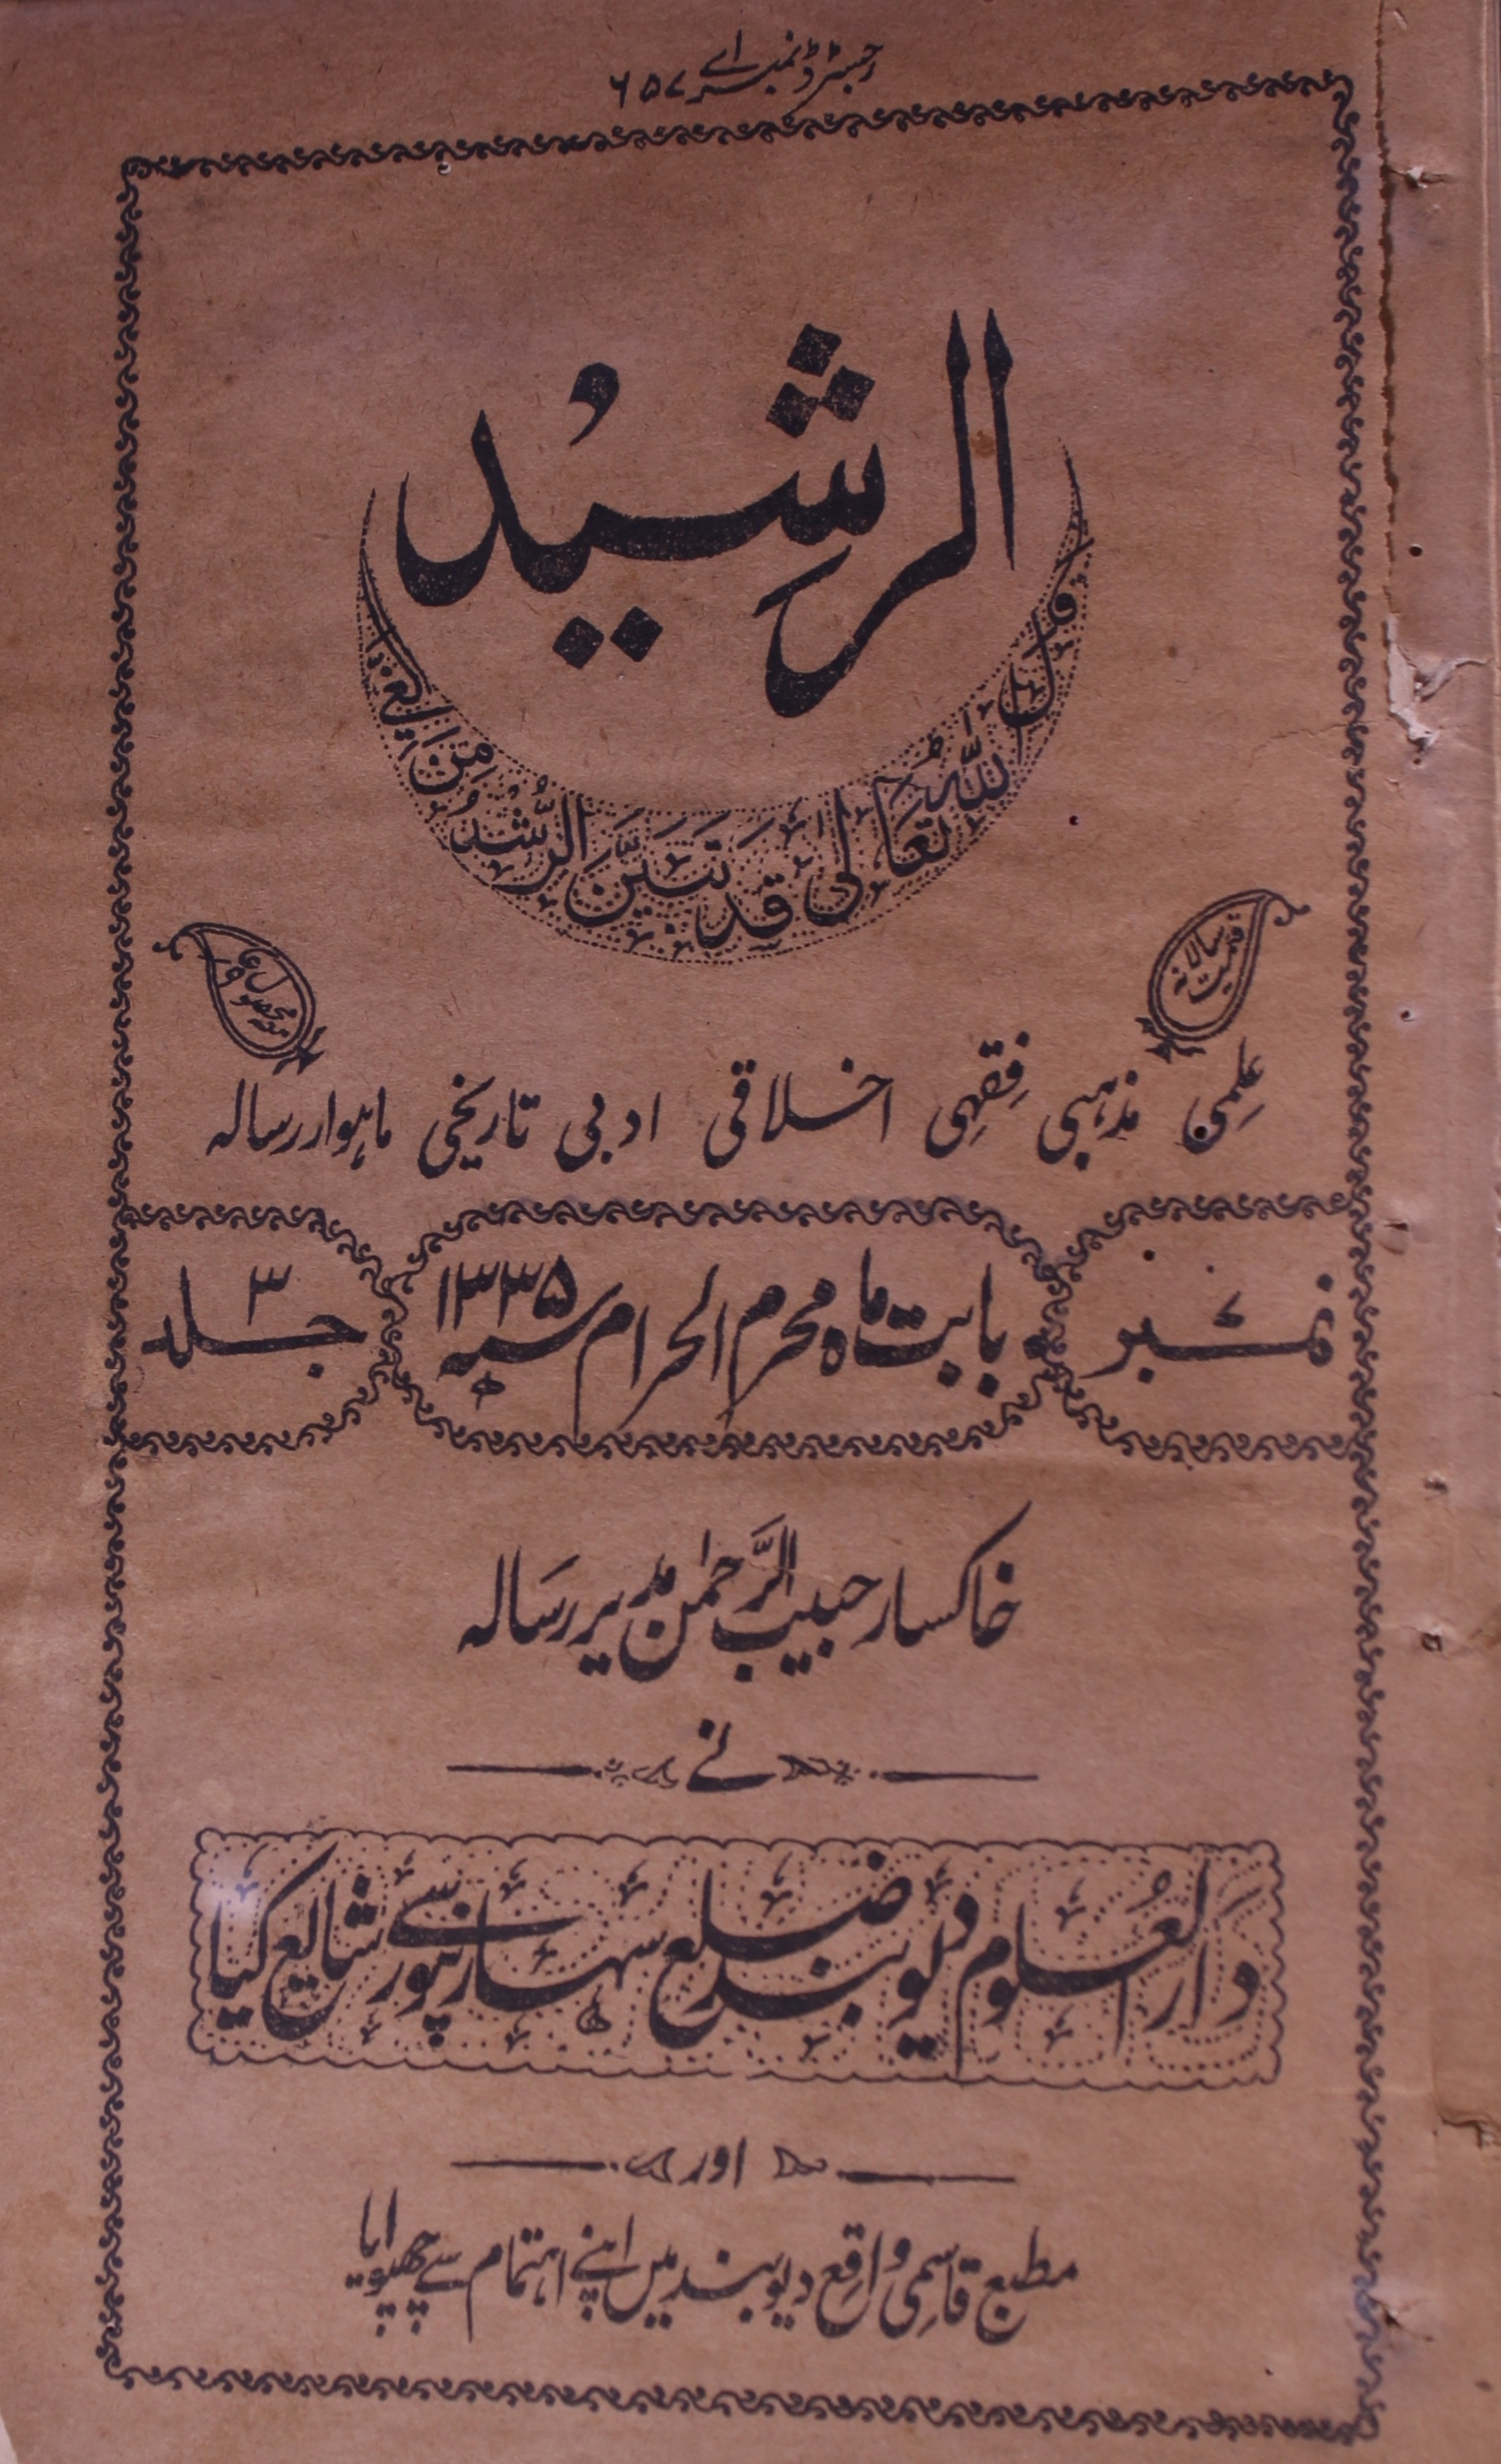 رجسٹرڈ نمبر اے ۶۵۷
الرشید
قال اللہ تعالی قد تبین الرشد من الغی
قیمت سالانہ
مع محصول
علمی مذہبی فقہی اخلاقی ادبی تاریخی ماہوار رسالہ
نمبر
بابت ماہ محرم الحرام ۱۳۳۵ سنہ ھ
جلد ۳
خاکسار حبیب الرحمٰن مدیر رسالہ
نے
دار العلوم دیوبند ضلع سہارنپور سے شایع کیا
اور
مطبع قاسمی واقع دیوبند میں اپنے اہتمام سے چھپوایا